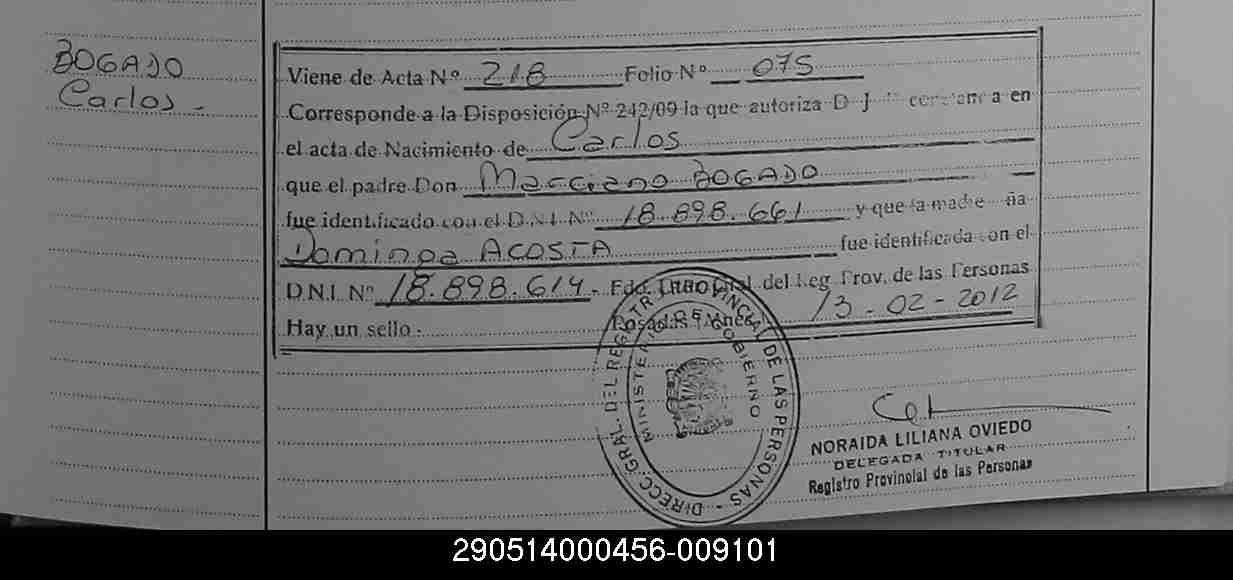 BOGADO
Carlos -
Viene de Acta Nº 218 Folio Nº 075
Corresponde a la Disposición Nº 242/09 la que autoriza D J a en
el acta de Nacimiento de Carlos
que el padre Don Marciano BOGADO
fue identificado con el D.N.I. Nº 18.898.661 y que la madre ña
Dominga ACOSTA fue identificada con el
D.N.I. Nº 18.898.614. Fdo. Gral. del Reg. Prov. de las Personas
Hay un sello. Posadas 13-02-2012
DIRECC. GRAL. DEL REGISTRO PROVINCIAL DE LAS PERSONAS -
MINISTERIO DE GOBIERNO
NORAIDA LILIANA OVIEDO
DELEGADA TITULAR
Registro Provincial de las Personas
290514000456-009101